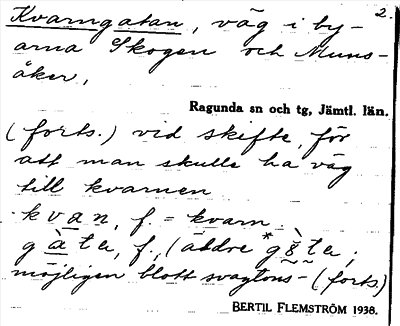 2.
Kvarngatan, väg i by-
arna Skogen och Muns-
åker,
Ragunda sn och tg, Jämtl. län.
(forts.) vid skifte, för
att man skulle ha väg
till kvarnen
kvan, f. = kvarn
gàta, f., (äldre *gata;
möjligen blott svagtons- (forts)
BERTIL FLEMSTRÖM 1938.